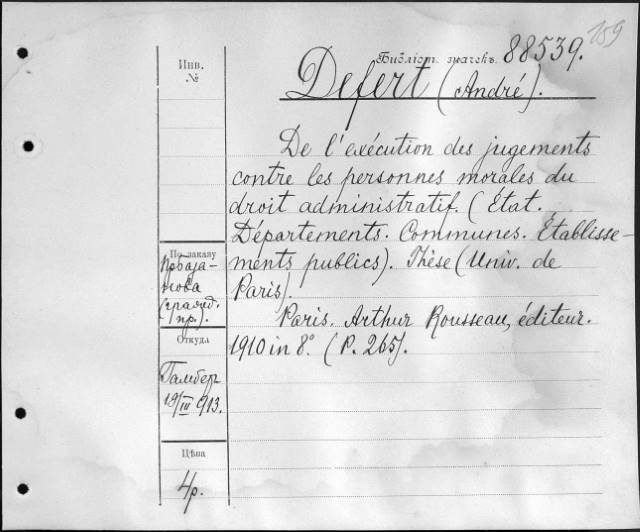 159
Библіот. значекъ 88539.
Инв.
№
Defert (André).
De l'exécution des jugements
contre les personnes morales du
droit administratif. (État.
Départements. Communes. Établisse-
ments publics). Thèse (Univ. de
Paris).
Paris. Arthur Rousseau, éditeur.
1910 in 8°. (P. 265).
По заказу
(гражд.
пр.).
Откуда
Гамбер
19/III 913.
Цѣна
4р.